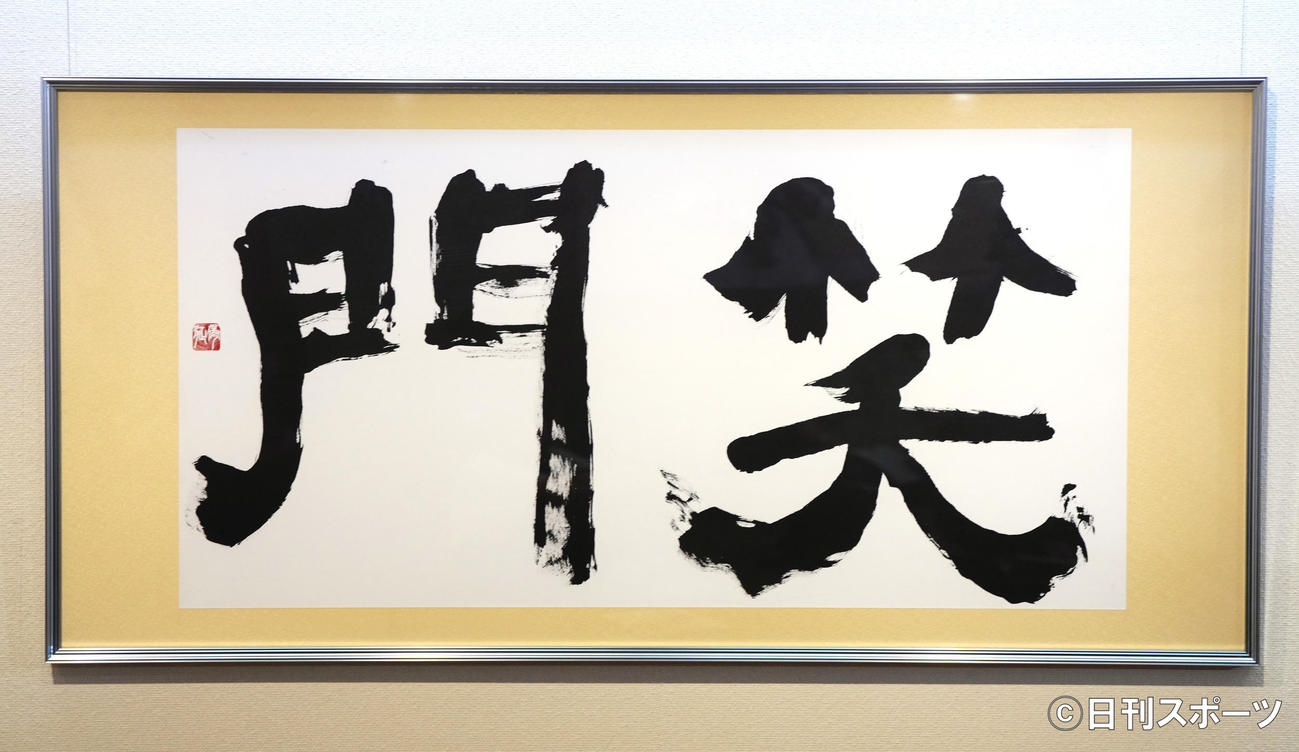 笑門
©日刊スポーツ